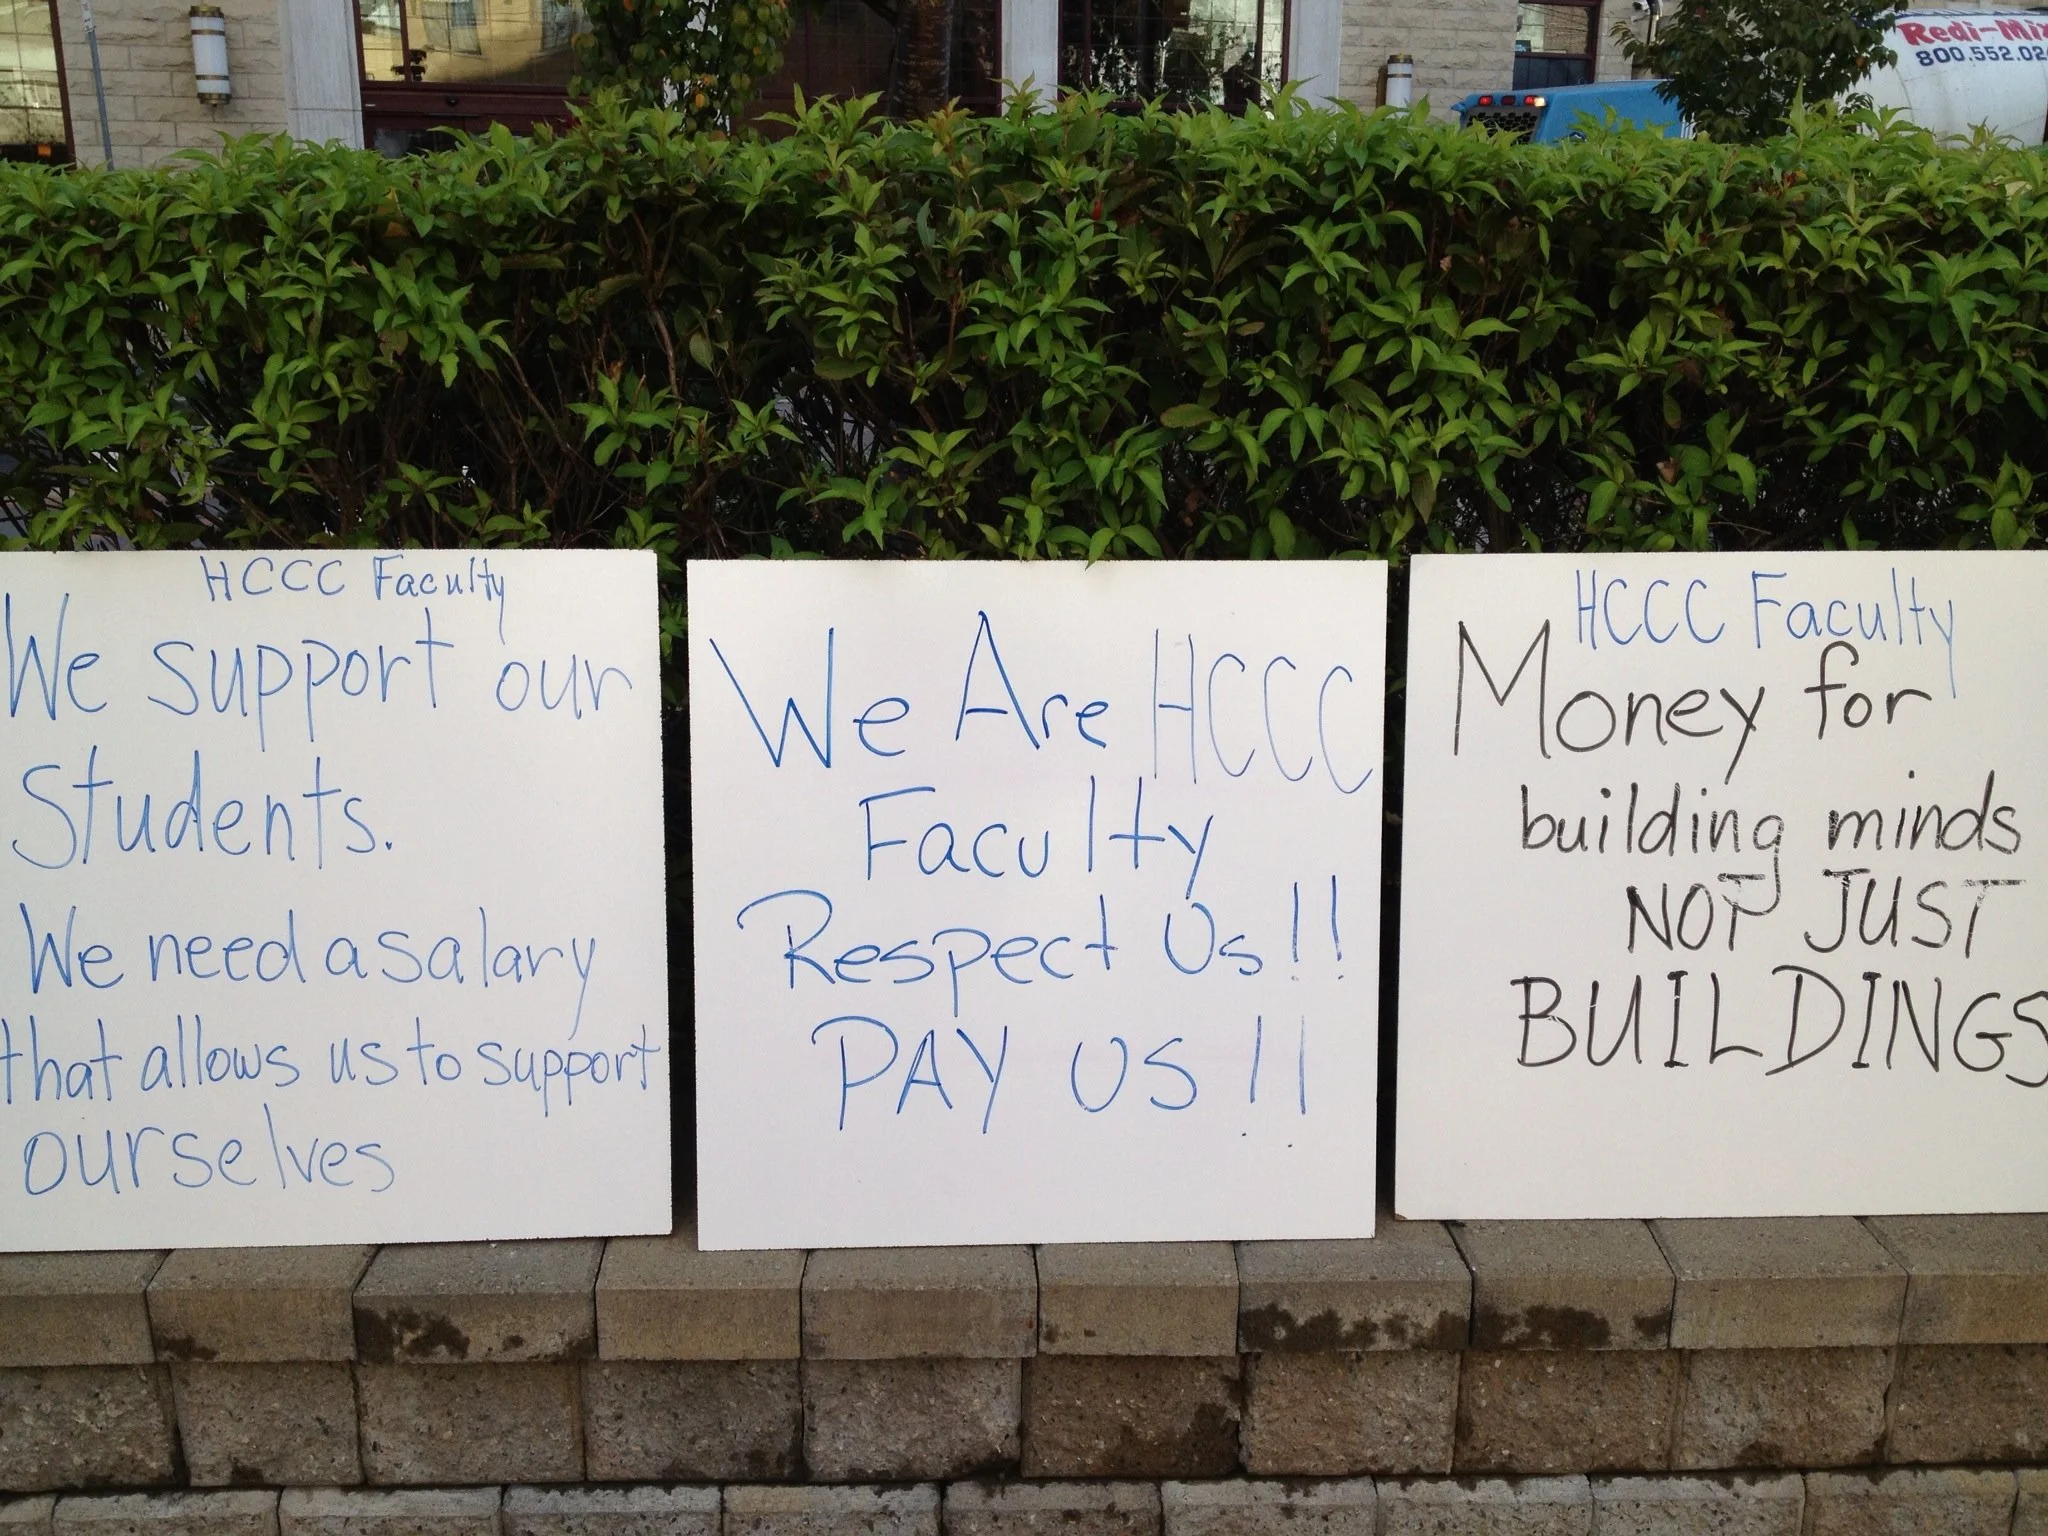 Redi-Mix
800.552.02
HCCC Faculty
We support our
Students.
We need a salary
that allows us to support
ourselves
We Are HCCC
Faculty
Respect Us!!
PAY US!!
HCCC Faculty
Money for
building minds
NOT JUST
BUILDINGS